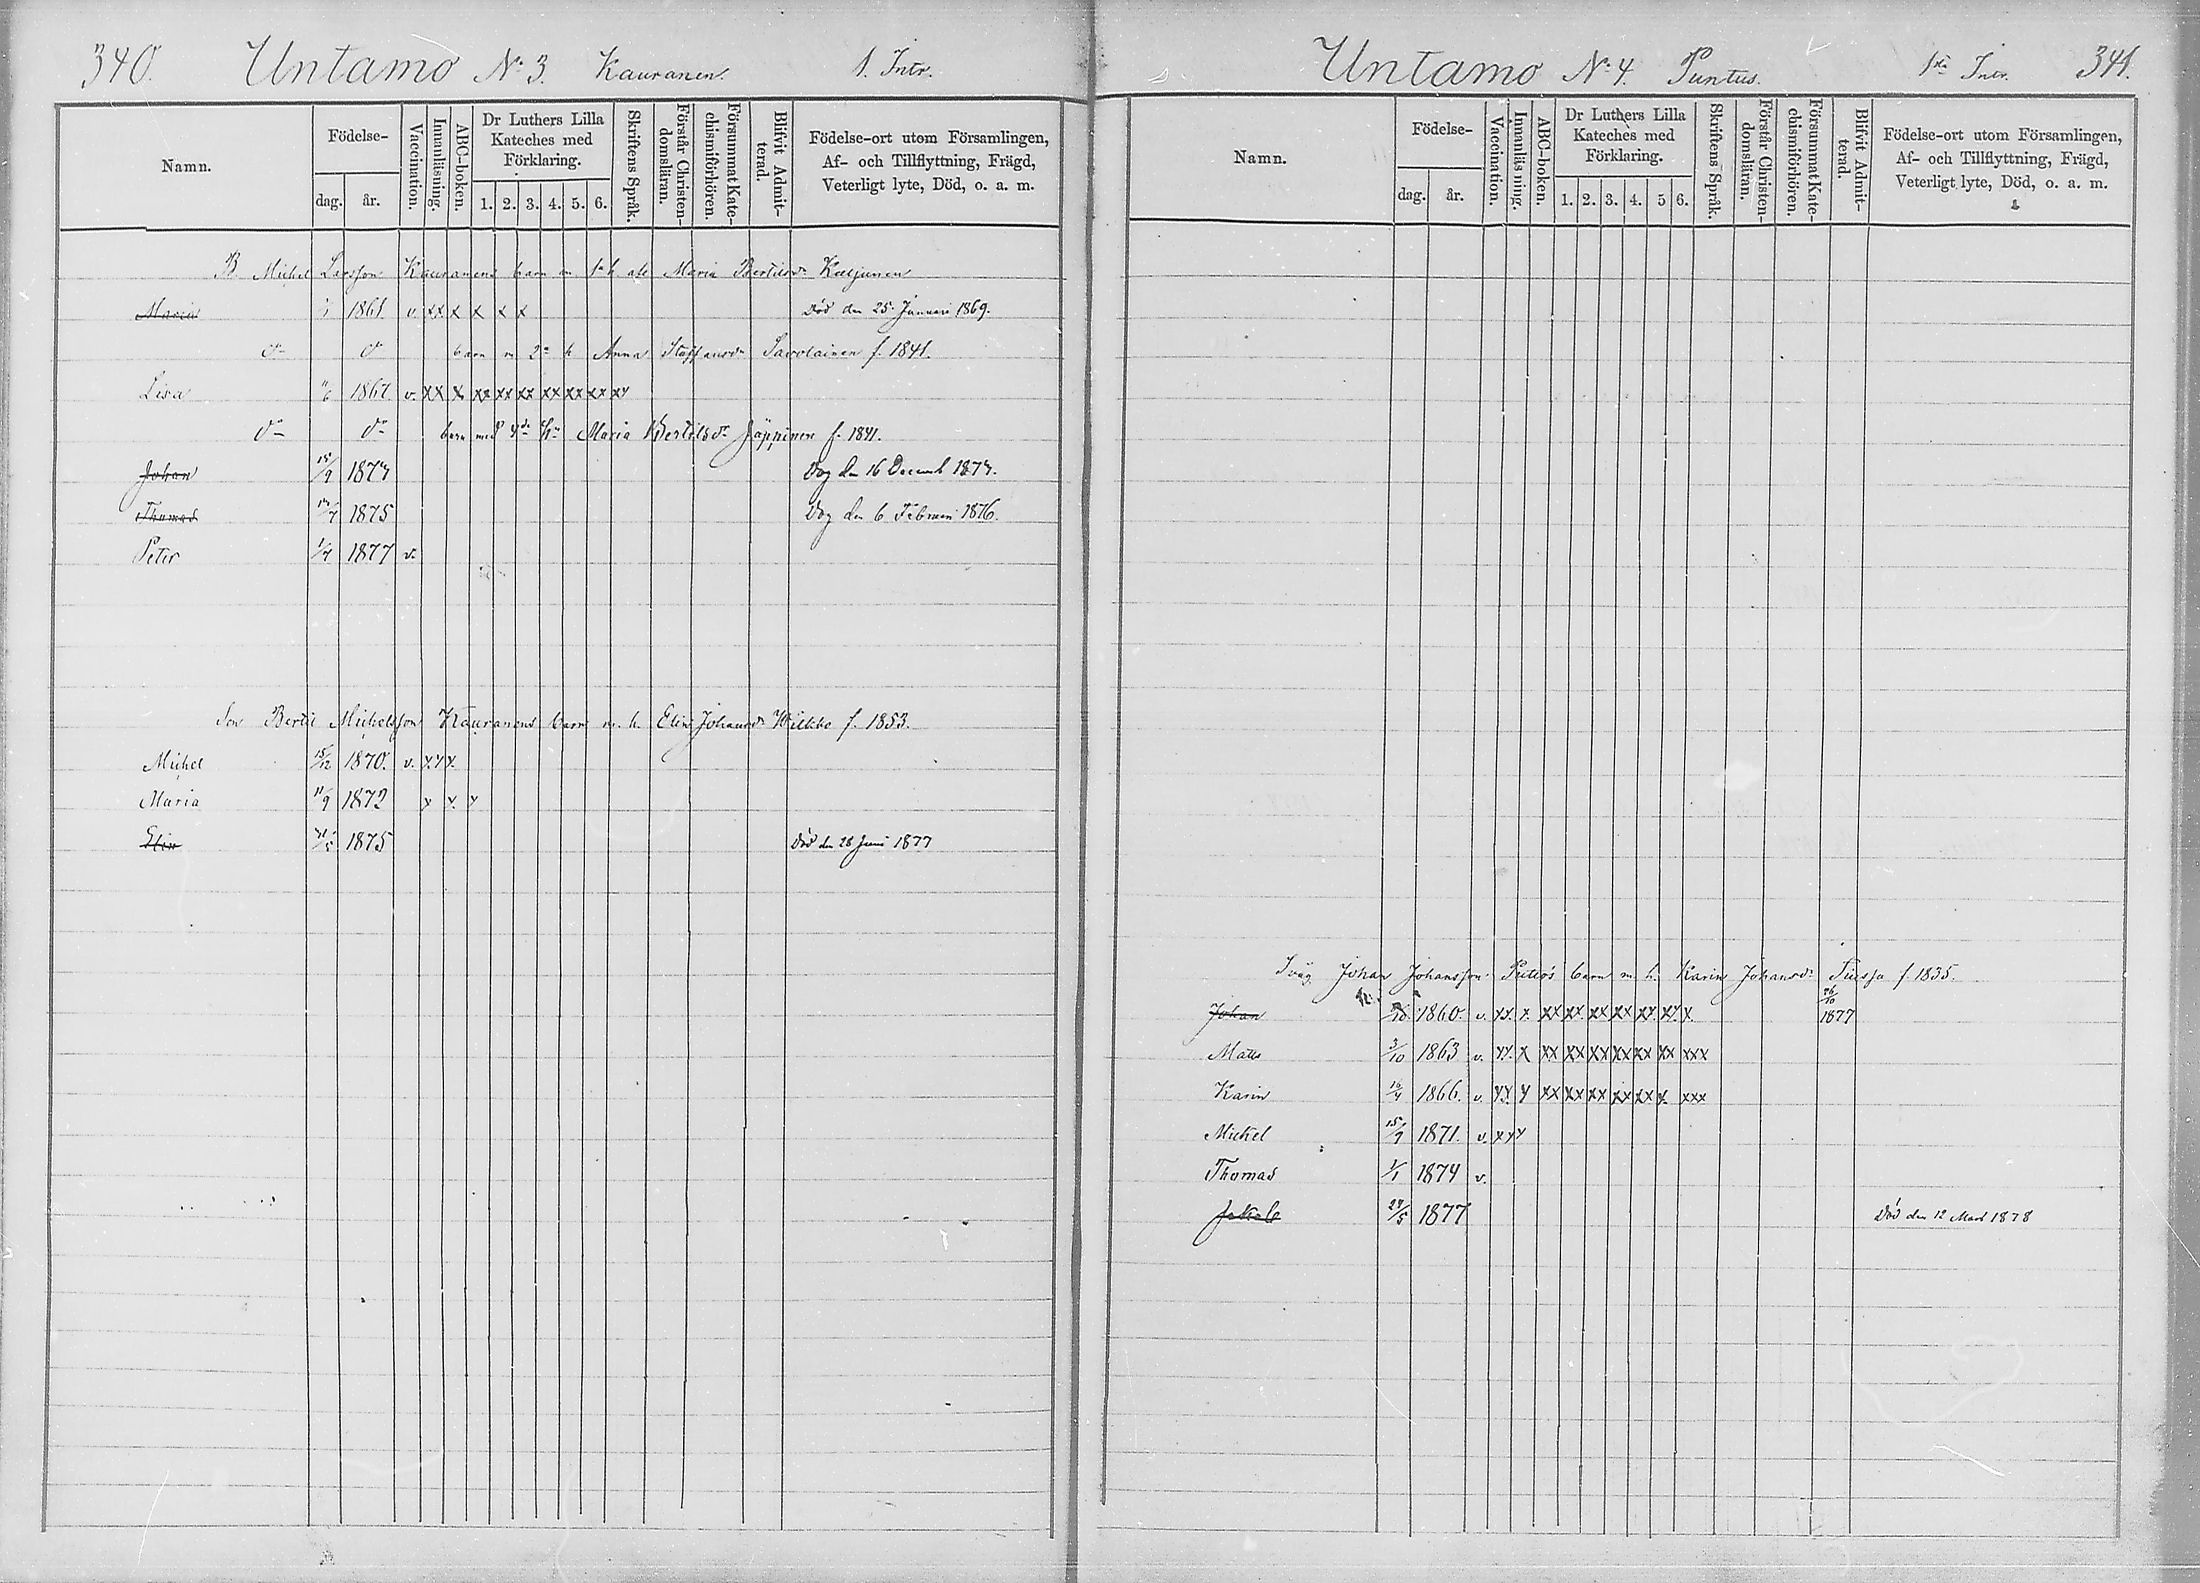 340. Untamo N:o 3. Kauranen. 1. Intr.
Namn.
Födelse-
dag. år.
Vaccination.
Innanläsning.
ABC-boken.
Dr Luthers Lilla Kateches med Förklaring.
1. 2. 3. 4. 5. 6.
Skriftens Språk.
Förstår Christendomsläran.
Försummat Katechismiförhören.
Blifvit Admitterad.
Födelse-ort utom Församlingen,
Af- och Tillflyttning, Frägd,
Veterligt lyte, Död, o. a. m.
B Michel Larsson Kauranens barn m 1a h afl Maria Bertilsdr
Maria 1861 v. xx x x x x Död den 25 Januari 1869.
do do barn m 2a h Anna Staffansdr Savolainen f. 1841.
Lisa 1867 v. xx x xx xx xx xx xx xx xx
do do barn med 4de h:u Maria Bertilsdr Jäppinen f. 1841.
Johan 15/9 Dog den 16 Decemb
Thomas 1875 Dog den 6 Februari 1876.
Peter 1/4 1877 v.
Son Bertil Michelsson Kauranens barn m. h. Elin Johansdr f. 1853.
Michel 15/12 1870. v. x x x.
Maria 11/9 1872 x x. x
Elin 1875 Död den 28 Juni 1877
Untamo N:o 4. Puntus. 1sta Intr. 341.
Namn.
Födelse-
dag. år.
Vaccination.
Innanläsning.
ABC-boken.
Dr Luthers Lilla Kateches med Förklaring.
1. 2. 3. 4. 5 6.
Skriftens Språk.
Förstår Christendomsläran.
Försummat Katechismiförhören.
Blifvit Admitterad.
Födelse-ort utom Församlingen,
Af- och Tillflyttning, Frägd,
Veterligt lyte, Död, o. a. m.
Johan Johansson barn m. h. Karin Johansdr f. 1835.
Johan 1860. v. xx. x. xx xx. xx xx xx. xx. x. 26/10 1877
Matts 3/10 1863 v. xx x xx xx xx xx xx xx xxx
Karin 16/4 1866. v. xx x xx xx xx xx xx x. xxx
Michel 15/9 1871. v. x x x
Thomas 1/1 1874 v.
Jakob 1877 Död den 12 Mars 1878